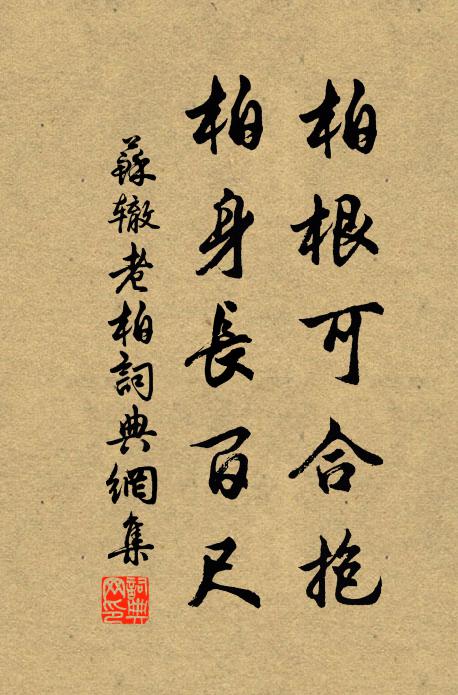 柏根可合抱
柏身長百尺
蘇辙老柏詞典網集
詞典網印